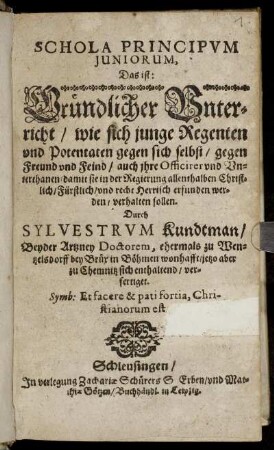 SCHOLA PRINCIPVM
JUNIORUM,
Das ist:
Gründlicher Unter-
richt / wie sich junge Regenten
und Potentaten gegen sich selbst / gegen
Freund vnd Feind / auch jhre Officirer vnd Vn-
terthanen / damit sie in der Regierung allenthalben Christ-
lich / Fürstlich / vnd recht Herrlich erfunden wer-
den / verhalten sollen.
Durch
SYLVESTRVM Kundtman /
Beyder Artzney Doctorem, ehermals zu Wen-
tzelsdorff bey Brüx in Böhmen wonhafft / jetzo aber
zu Chemnitz sich enthaltend / ver-
fertiget.
Symb: Et facere & pati fortia, Chri-
stianorum est
Schleusingen /
In verlegung Zachariæ Schürers S. Erben / vnd Mat-
thiæ Götzen / Buchhändl. in Leipzig.